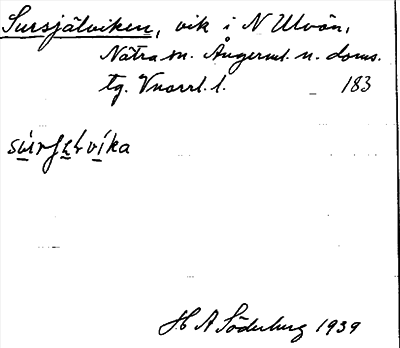 Sursjälviken, vik i N Ulvön,
Nätra sn. Ångerml. n. doms.
tg. Vnorrl. l. _ 183
H A Söderberg 1939